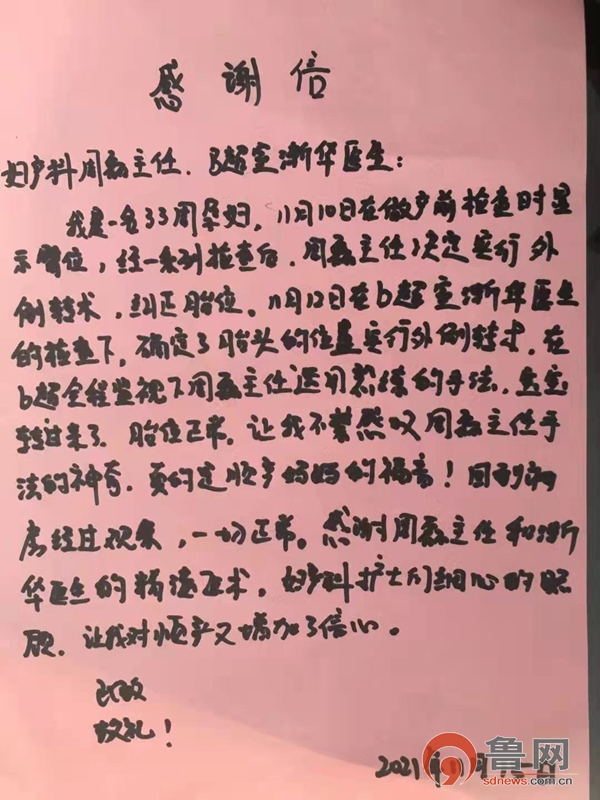 感谢信
妇产科周磊主任、B超室浙华医生：
我是一名33周孕妇，11月10日在做产前检查时显
示臀位，经一系列检查后，周磊主任决定实行外
倒转术，纠正胎位。11月12日在b超室浙华医生
的检查下，确定了胎头的位置实行外倒转术，在
b超全程监视下周磊主任运用熟练的手法，宝宝
转过来了，胎位正常，让我不禁感叹周磊主任手
法的神奇，真的是顺产妈妈的福音！回到病
房经过观察，一切正常。感谢周磊主任和浙
华医生的精湛医术，妇产科护士们细心的照
顾，让我对顺产又增加了信心。
此致
敬礼！
2021年11月
鲁网
sdnews.com.cn